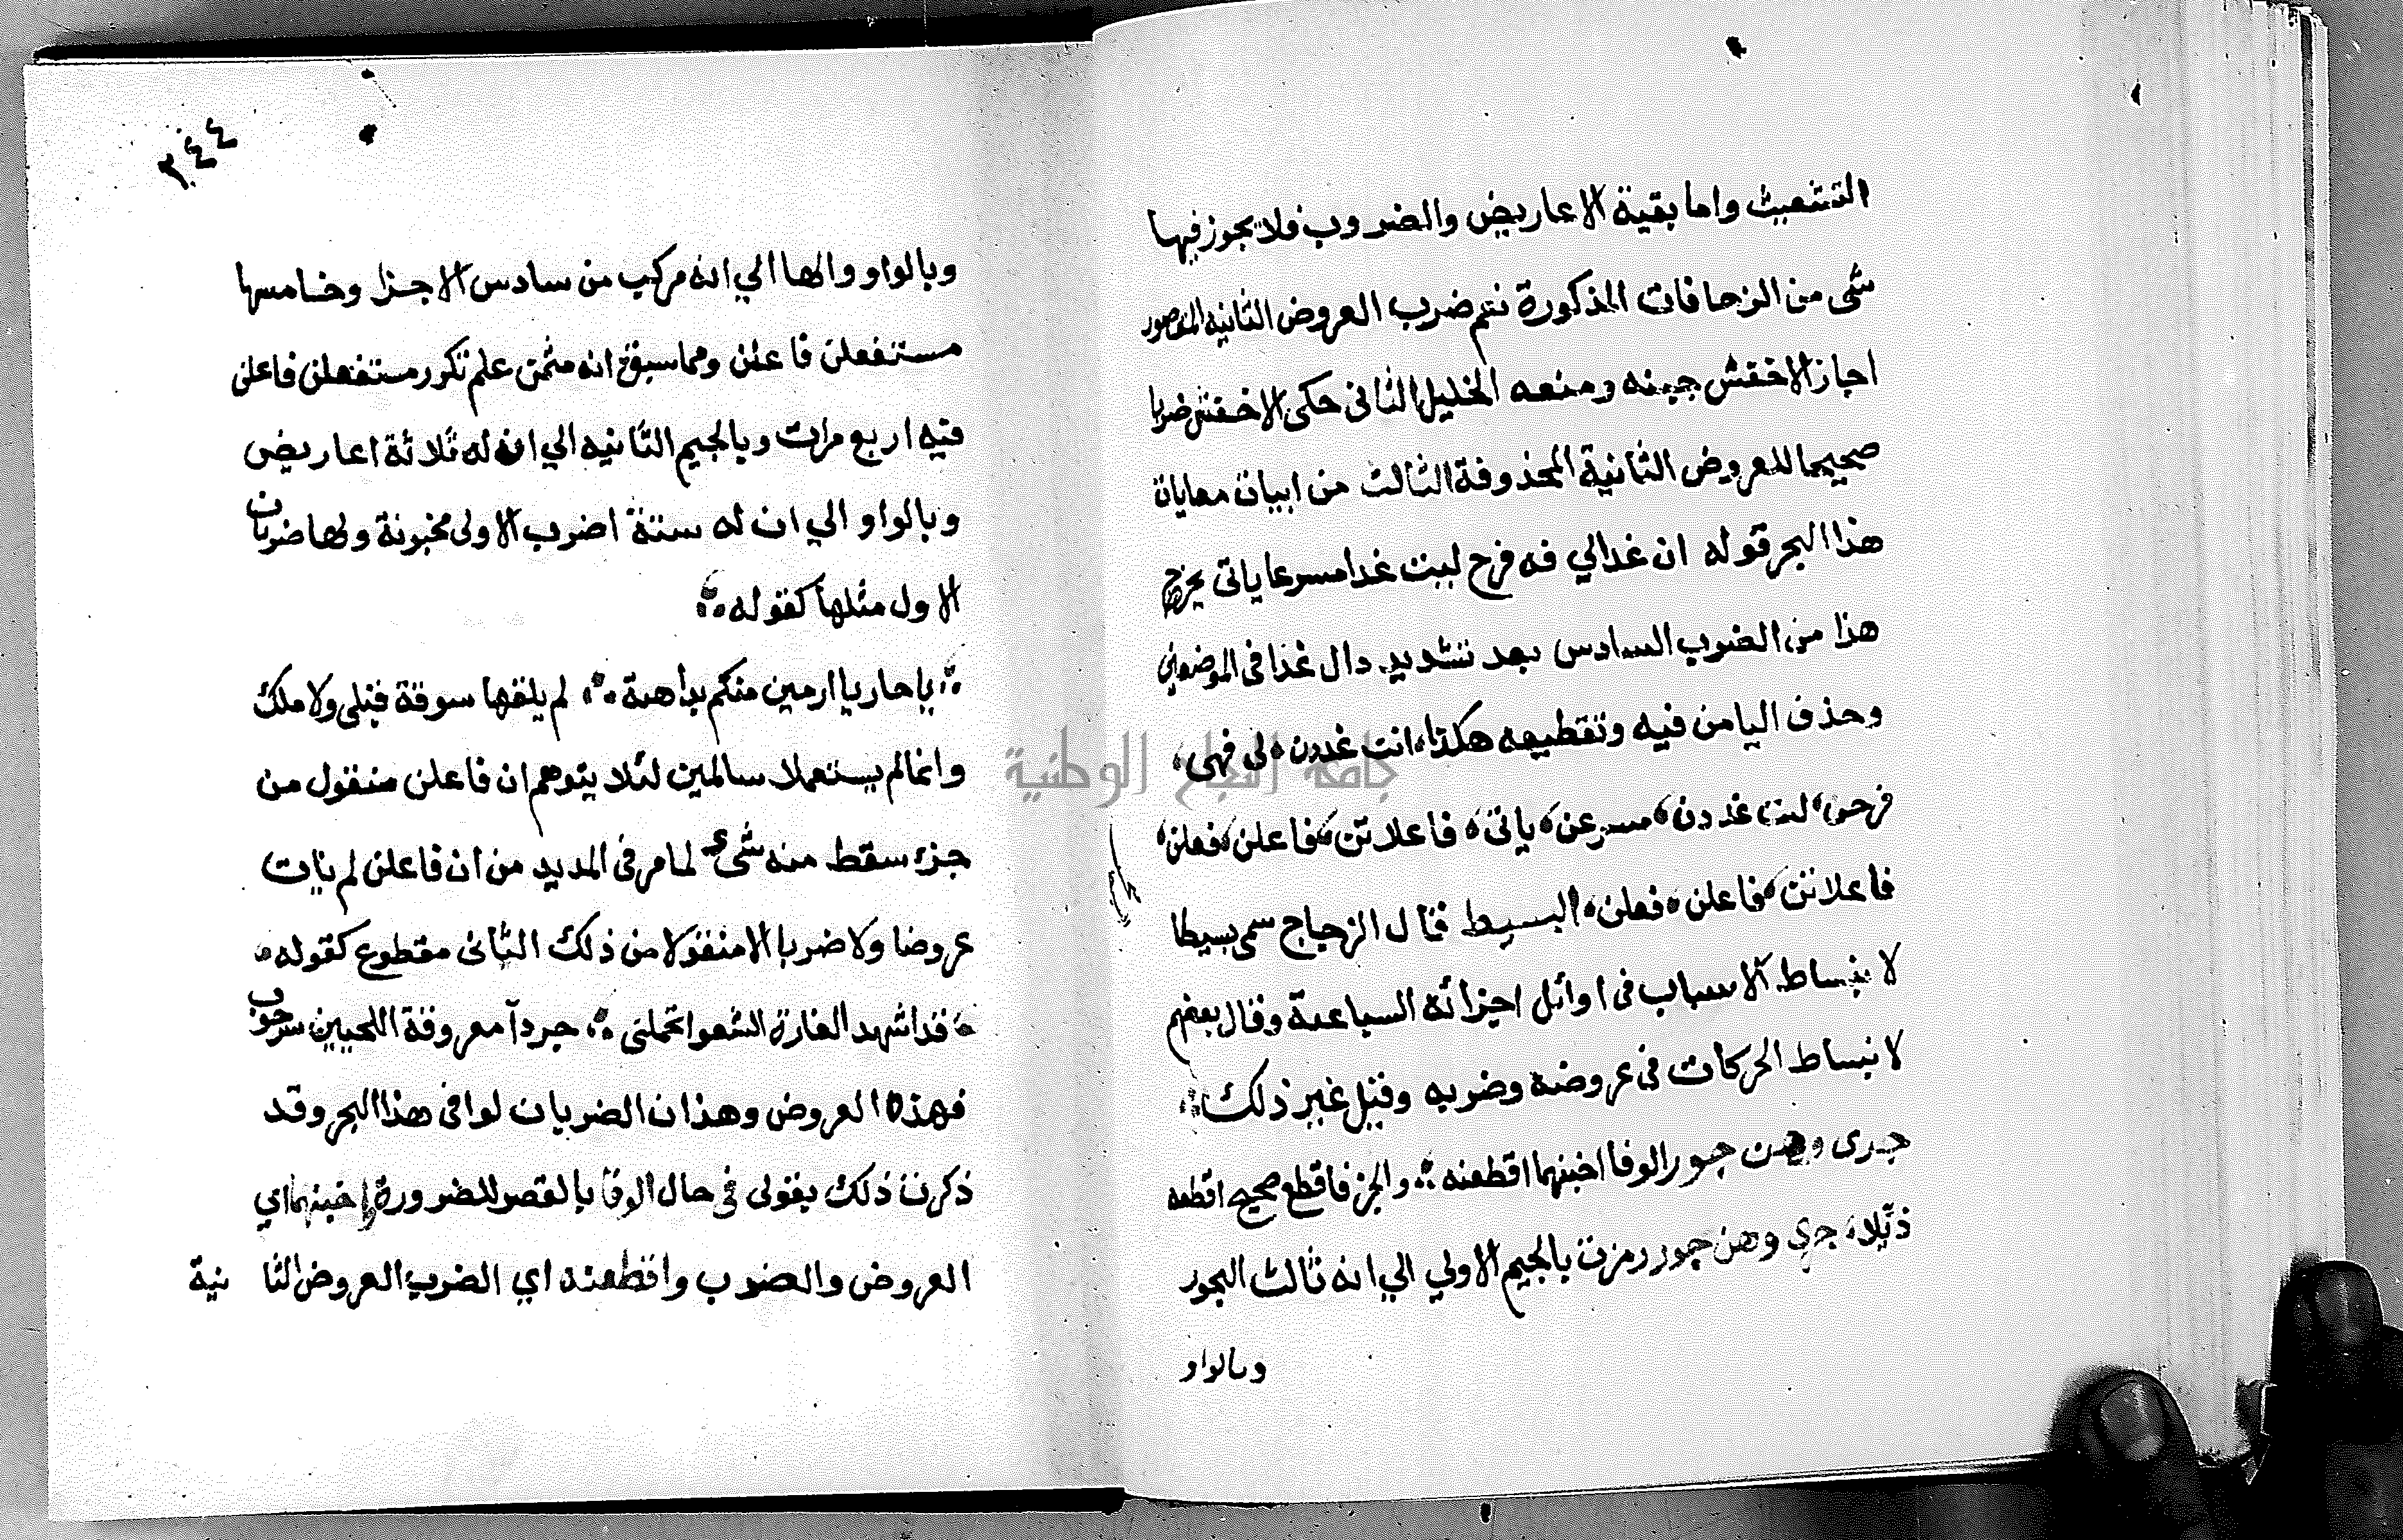 التشعيث واما بقية الاعاريض والضروب فلا يجوز فيها
شى من الزحافات المذكورة نتم ضرب العروض الثانيه المقصور
اجاز الاخفش خبنه ومنعه الخليل الثانى حكى الاخفش ضربا
صحيحا للعروض الثانية المحذوفة الثالث من ابيات معايات
هذا البحر قوله ان غدالي فه فرح لبيت غدا مسرعا ياتى يخرج
هذا من الضرب السادس بعد تشديد دال غدا فى الموضعين
وحذف اليا من فيه وتقطيعه هكذا انت غددن لى فهى
فرحن ليت غددن مسرعن ياتى فاعلاتن فاعلن فعلن
فاعلاتن فاعلن فعلن البسيط قال الزجاج سمى بسيطا
لانبساط الاسباب فى اوائل اجزائه السباعية وقال بعضهم
لانبساط الحركات فى عروضه وضربه وقيل غير ذلك
جرى وهن جور الوفا اخبنهما اقطعنه والجز فاقطع صحيح اقطعه
ذيلا جري وهن جور رمزت بالجيم الاولي الي انه ثالث البحور
وبالواو
٢٤٤
وبالواو والها الي انه مركب من سادس الاجزا وخامسها
مستفعلن فاعلن ومما سبق انه مثمن علم تكرر مستفعلن فاعلن
فيه اربع مرات وبالجيم الثانيه الي ان له ثلاثة اعاريض
وبالواو الي ان له ستة اضرب الاولى مخبونة ولها ضربان
الاول مثلها كقوله
ياحار يا ارمين منكم بداهية لم يلقها سوقة قبلى ولا ملك
وانما لم يستعملا سالمين لئلا يتوهم ان فاعلن منقول من
جزء سقط منه شىء لما مر فى المديد من ان فاعلن لم يات
عروضا ولا ضربا الا منقولا من ذلك الثانى مقطوع كقوله
قد اشهد الغارة الشعوا تحملنى جردآ معروقة اللحيين سرحوب
فهذه العروض وهذان الضربان لوافى هذا البحر وقد
ذكرت ذلك بقولى فى حال الوفا بالقصر للضرورة اخبنهما اي
العروض والضرب واقطعنه اي الضرب العروض الثا نية
جامعة النجاح الوطنية